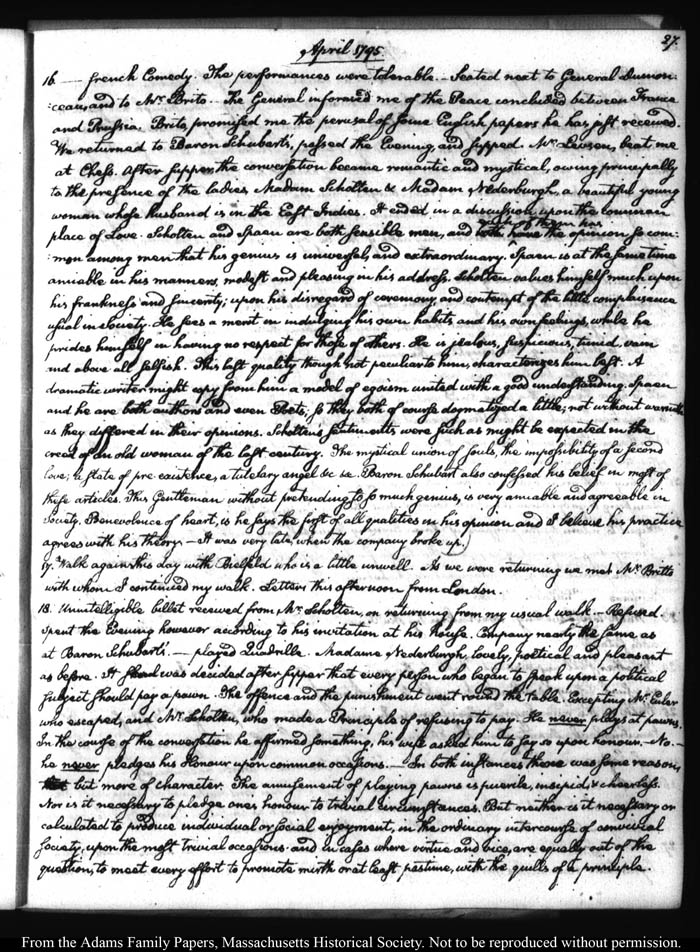 27.
April 1795.
16. — french Comedy. The performances were tolerable. — Seated next to General Dumon:
:ceau, and to Mr. Brito. — The General informed me of the Peace concluded between France
and Prussia. Brito promised me the perusal of some English papers he has just received.
We returned to Baron Schubart's, passed the Evening, and supped. Mr. Levsen, beat me
at Chess. After supper the conversation became romantic and mystical, owing principally
to the presence of the ladies. Madam Scholten & Madam Nederburgh, a beautiful young
woman whose husband is in the East Indies. It ended in a discussion upon the common
place of Love. Scholten and Spaen are both sensible men, and each of them has the opinion so com:
:mon among men that his genius is universal, and extraordinary. Spaen is at the same time
amiable in his manners, modest and pleasing in his address. Scholten values himself much upon
his frankness and sincerity; upon his disregard of ceremony, and contempt of the little complaisance
usual in society. He sees a merit in indulging his own habits and his own feelings, while he
prides himself in having no respect for those of others. He is jealous, suspicious, timid, vain
and above all selfish. This last quality though not peculiar to him, characterizes him best. A
dramatic writer might copy from him a model of egoism united with a good understanding. Spaen
and he are both authors and even Poets, so they both of course dogmatized a little; not without warmth
as they differed in their opinions. Scholten's sentiments were such as might be expected in the
creed of an old woman of the last century. The mystical union of souls, the impossibility of a second
love; a state of pre-existence, a tutelary angel &c &c. Baron Schubart also confessed his belief in most of
these articles. This Gentleman without pretending to so much genius, is very amiable and agreeable in
Society. Benevolence of heart, is he says the first of all qualities in his opinion and I believe his practice
agrees with his theory. — It was very late, when the company broke up.
17. Walk again this day with Bielfeld who is a little unwell. As we were returning we met Mr. Britto
with whom I continued my walk. Letters this afternoon from London.
18. Unintelligible billet received from Mr. Scholten, on returning from my usual walk. — Refused.
Spent the Evening however according to his invitation at his house. Company nearly the same as
at Baron Schubart's. — played Quadrille. Madame Nederburgh, lovely, poetical and pleasant
as before. It was decided after supper that every person who began to speak upon a political
subject should pay a pawn. The offence and the punishment went round the table. Excepting Mr. Euler
who escaped, and Mr. Scholten, who made a Principle of refusing to pay. He never plays at pawns.
In the course of the conversation he affirmed something, his wife asked him to say so upon honour. — No. —
he never pledges his Honour upon common occasions. — In both instances there was some reason,
but more of character. The amusement of playing pawns is puerile, insipid, & cheerless.
Nor is it necessary to pledge ones honour to trivial circumstances. But neither is it necessary or
calculated to produce individual or social enjoyment, in the ordinary intercourse of convivial
society, upon the most trivial occasions and in cases where virtue and vice, are equally out of the
question, to meet every effort to promote mirth or at least pastime, with the quills of a principle.
From the Adams Family Papers, Massachusetts Historical Society. Not to be reproduced without permission.